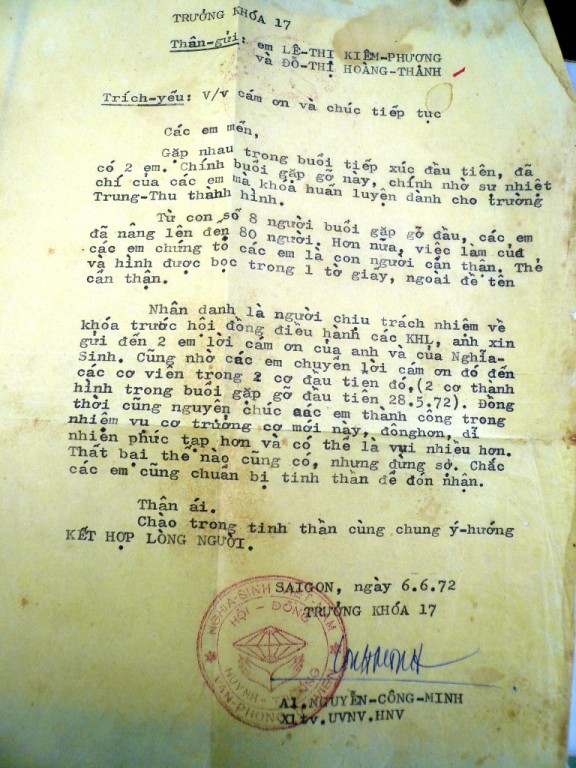 TRƯỞNG KHÓA 17
Thân-gửi: em LÊ-THỊ KIÊM-PHƯƠNG
và ĐỖ-THỊ HOÀNG-THÀNH
Trích-yếu: V/v cám ơn và chúc tiếp tục
Các em mến,
Gặp nhau trong buổi tiếp xúc đầu tiên, đã
có 2 em. Chính buổi gặp gỡ này, chính nhờ sư nhiệt
chí của các em mà khóa huấn luyện dành cho trường
Trung-Thu thành hình.
Từ con số 8 người buổi gặp gỡ đầu, các em
đã nâng lên đến 80 người. Hơn nữa, việc làm của
các em chứng tỏ các em là con người cẩn thận. Thẻ
và hình được bọc trong 1 tờ giấy, ngoài đề tên
cẩn thận.
Nhân danh là người chịu trách nhiệm về
khóa trước hội đồng điều hành các KHL, anh xin
gửi đến 2 em lời cám ơn của anh và của Nghĩa-
Sinh. Cũng nhờ các em chuyển lời cám ơn đó đến
các cơ viên trong 2 cơ đầu tiên đó,(2 cơ thành
hình trong buổi gặp gỡ đầu tiên 28.5.72). Đồng
thời cũng nguyện chúc các em thành công trong
nhiệm vụ cơ trưởng cơ mới này, đônghơn, dĩ
nhiên phức tạp hơn và có thể là vui nhiều hơn.
Thất bại thế nào cũng có, nhưng đừng sợ. Chắc
các em cũng chuẩn bị tinh thần để đón nhận.
Thân ái.
Chào trong tinh thần cùng chung ý-hướng
KẾT HỢP LÒNG NGƯỜI.
SAIGON, ngày 6.6.72
TRƯỞNG KHÓA 17
NGHĨA-SINH VIỆT-NAM
HỘI-ĐỒNG
HUYNH-TRƯỞNG
VĂN-PHÒNG
Al.NGUYỄN-CÔNG-MINH
Xltv.UVNV.HNV